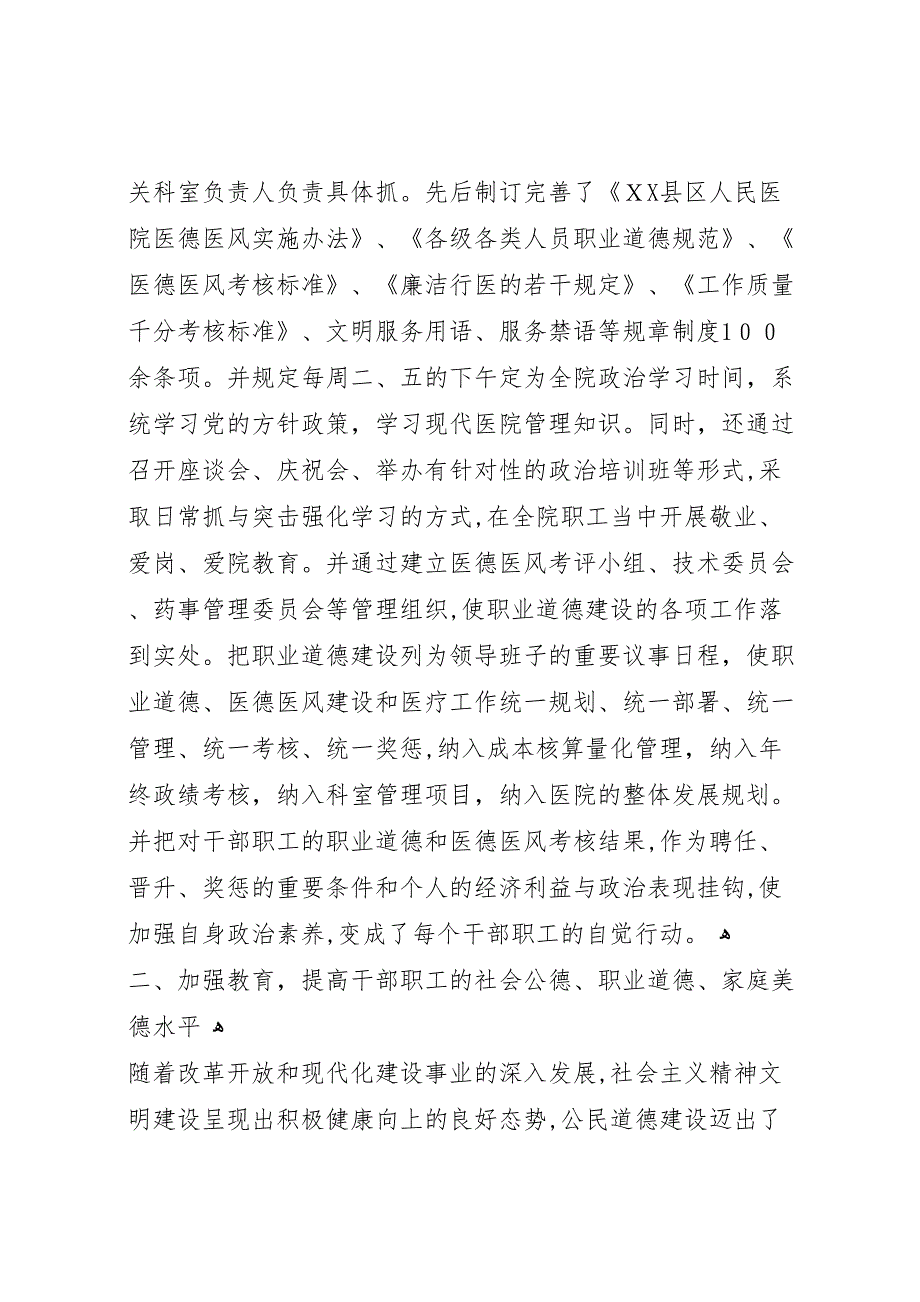 关科室负责人负责具体抓。先后制订完善了《XX县区人民医
院医德医风实施办法》、《各级各类人员职业道德规范》、《
医德医风考核标准》、《廉洁行医的若干规定》、《工作质量
千分考核标准》、文明服务用语、服务禁语等规章制度１００
余条项。并规定每周二、五的下午定为全院政治学习时间，系
统学习党的方针政策，学习现代医院管理知识。同时，还通过
召开座谈会、庆祝会、举办有针对性的政治培训班等形式,采
取日常抓与突击强化学习的方式,在全院职工当中开展敬业、
爱岗、爱院教育。并通过建立医德医风考评小组、技术委员会
、药事管理委员会等管理组织,使职业道德建设的各项工作落
到实处。把职业道德建设列为领导班子的重要议事日程，使职
业道德、医德医风建设和医疗工作统一规划、统一部署、统一
管理、统一考核、统一奖惩,纳入成本核算量化管理，纳入年
终政绩考核，纳入科室管理项目，纳入医院的整体发展规划。
并把对干部职工的职业道德和医德医风考核结果,作为聘任、
晋升、奖惩的重要条件和个人的经济利益与政治表现挂钩,使
加强自身政治素养,变成了每个干部职工的自觉行动。 ﻫ
二、加强教育，提高干部职工的社会公德、职业道德、家庭美
德水平 ﻫ
随着改革开放和现代化建设事业的深入发展,社会主义精神文
明建设呈现出积极健康向上的良好态势,公民道德建设迈出了